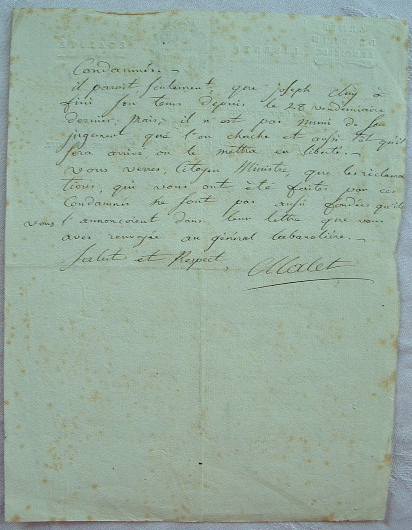 Condamnés. —
il parait seulement, que joseph Cluy a
fini son tems depuis le 28 vendemiaire
dernier, mais, il n'est pas muni de son
jugement que l'on cherche et aussi tôt qu'il
sera arrivé on le mettra en liberté. —
vous verrés, Citoyen Ministre, que les réclama
tions, qui vous ont été faites par ces
Condamnés ne sont pas aussi fondées qu'ils
vous l'annoncoient dans leur lettre que vous
avés renvoyée au général
Salut et Respect,
Malet